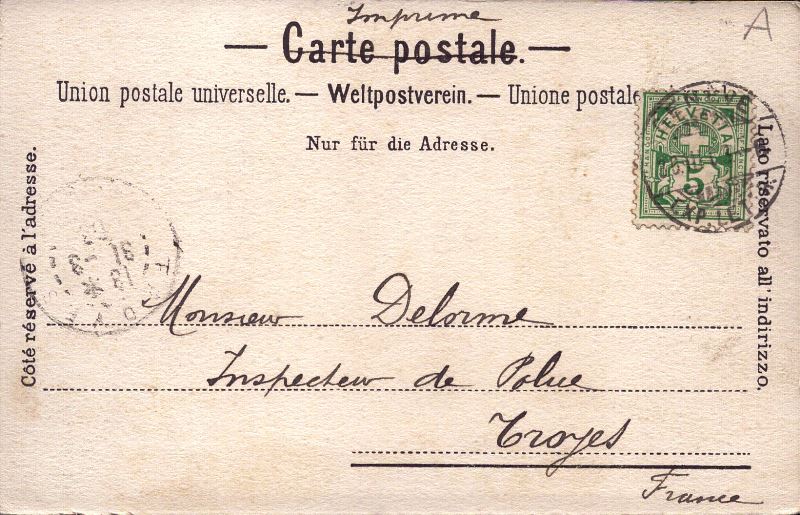 Imprimé
A
— Carte postale. —
Union postale universelle. — Weltpostverein. — Unione postale
Nur für die Adresse.
HELVETIA
5
EXP. LET
Côté réservé à l'adresse.
Lato riservato all' indirizzo.
Monsieur Delorme
Inspecteur de Police
Troyes
France